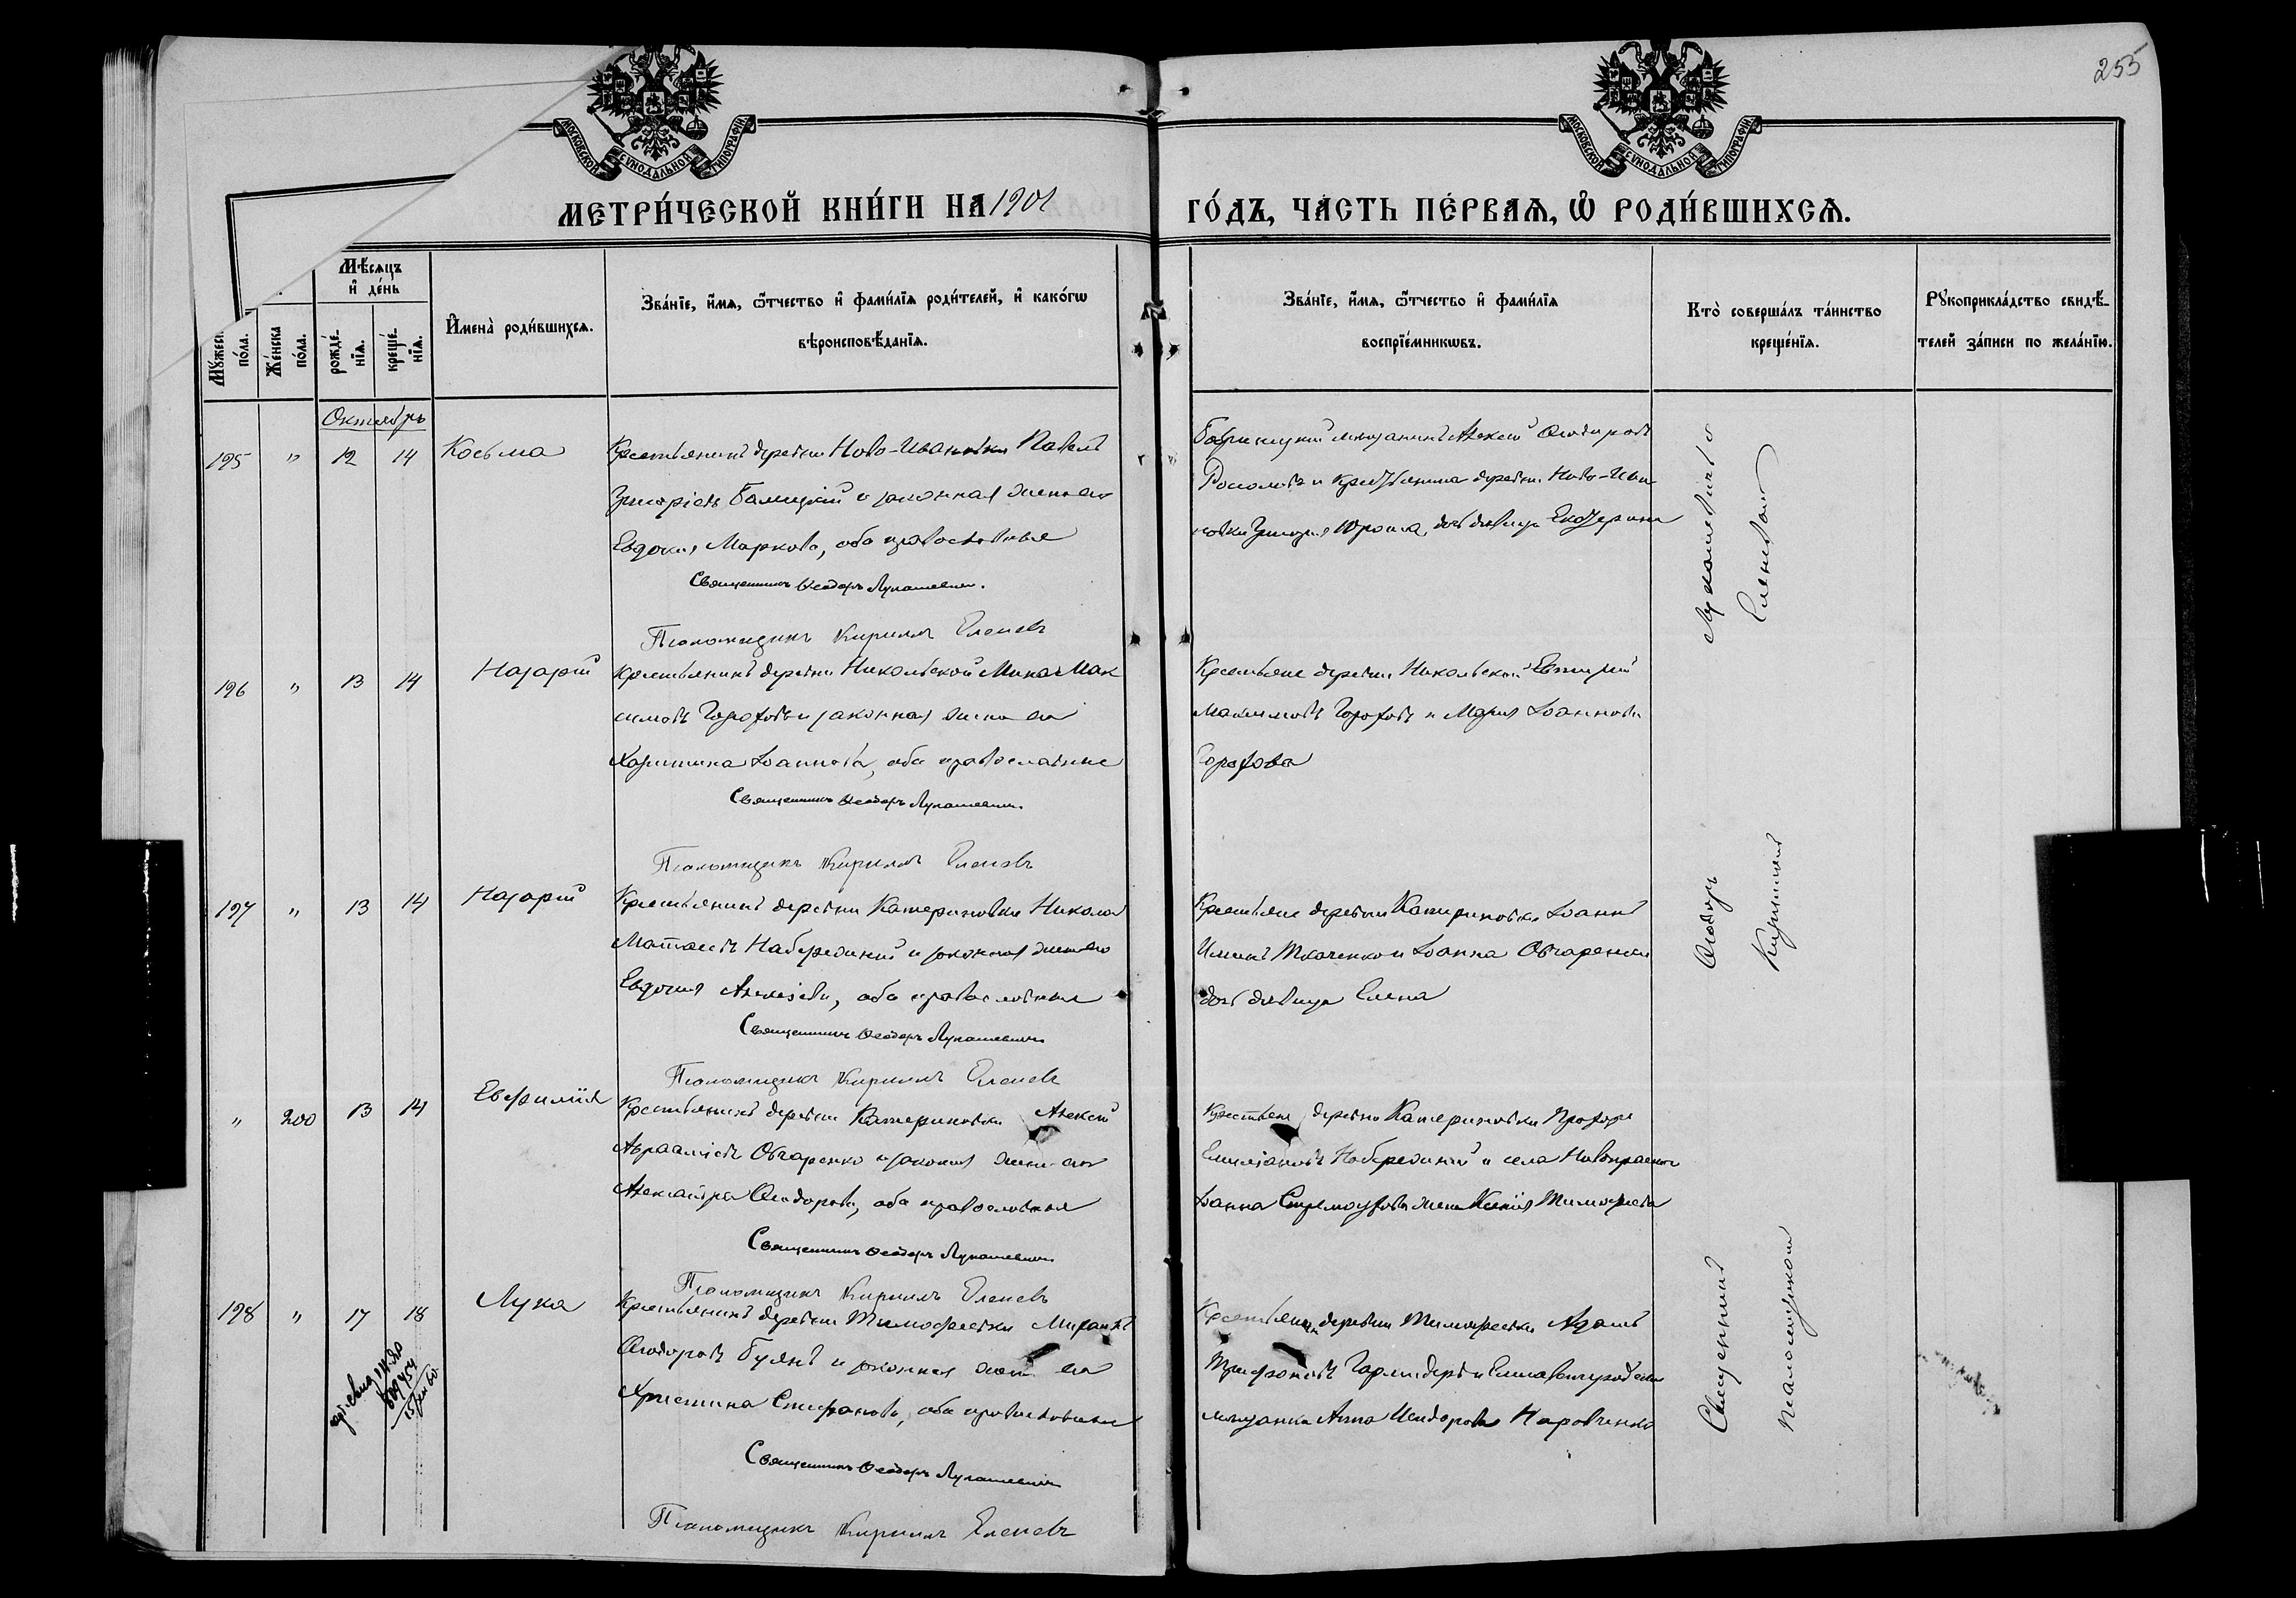 255
МОСКОВСКОЙ СѴНОДАЛЬНОЙ ТИПОГРАФІИ
МОСКОВСКОЙ СѴНОДАЛЬНОЙ ТИПОГРАФІИ
МЕТРИ́ЧЕСКОЙ КНИ́ГИ НА 1901
ГО́ДЪ, ЧА́СТЬ ПЕ́РВАЯ, Ѡ РОДИ́ВШИХСЯ.
Мѣ́сяцъ и҆ де́нь
Же́нска по́ла.
рожде́-нїя.
креще́-нїя.
И҆мена̀ роди́вшихся.
Зва́нїе, и҆́мя, ѻ҆́тчество и҆ фами́лїя роди́телей, и҆ како́гѡ
вѣроисповѣ́данїя.
Зва́нїе, и҆́мя, ѻ҆́тчество и҆ фами́лїя
воспрїе́мникѡвъ.
Кто̀ соверша́лъ та́инство
креще́нїя.
Рꙋкоприкла́дство свидѣ́-
телей за́писи по жела́нїю.
Октябрь
195 " 12 14 Косьма
Крестьянинъ деревни Ново-Ивановки Павелъ
Григоріевъ Балицкій и законная жена его
Евдокія Маркова, оба православные
Священникъ Ѳеодоръ Лукашевичъ.
Псаломщикъ Кириллъ Еленевъ
мѣщанинъ Алексѣй Ѳеодоровъ
и крестьянина деревни Ново-Ива
новки Григорія дочь дѣвица Екатерина
196 " 13 14 Назарій
Крестьянинъ деревни Никольской Мина Мак
симовъ Гороховъ и законная жена его
Харитина Іоаннова, оба православные
Священникъ Ѳеодоръ Лукашевичъ.
Псаломщикъ Кириллъ Еленевъ
Крестьяне деревни Никольской
Максимовъ Гороховъ и Марія Іоаннова
Горохова
197 " 13 14 Назарій
Крестьянинъ деревни Катериновки Николай
Матѳеевъ Набережный и законная жена его
Евдокія Алексѣева, оба православные
Священникъ Ѳеодоръ Лукашевичъ
Псаломщикъ Кириллъ Еленевъ
Крестьяне деревни Катериновки Іоаннъ
Ткаченко и Іоанна Овчаренки
дочь дѣвица Елена
" 200 13 14 Евфимія
Крестьянинъ деревни Катериновки Алексѣй
Аврааміевъ Овчаренко и законная жена его
Александра Ѳеодорова, оба православные
Священникъ Ѳеодоръ Лукашевичъ
Псаломщикъ Кириллъ Еленевъ
Крестьяне деревни Катериновки Прохоръ
Емиліановъ Набережный и села
Іоанна жена Ксенія Тимофеева
198 " 17 18 Лука
Крестьянинъ деревни Тимофеевки
Ѳеодоровъ Буянъ и законная жена его
Христина Стефанова, оба православные
Священникъ Ѳеодоръ Лукашевичъ
Псаломщикъ Кириллъ Еленевъ
Крестьянинъ деревни Тимофеевки Адамъ
Трифоновъ и Елисаветградская
мѣщанка Анна Исидорова
Священникъ Ѳеодоръ Лукашевичъ съ
псаломщикомъ Кирилломъ Еленевымъ